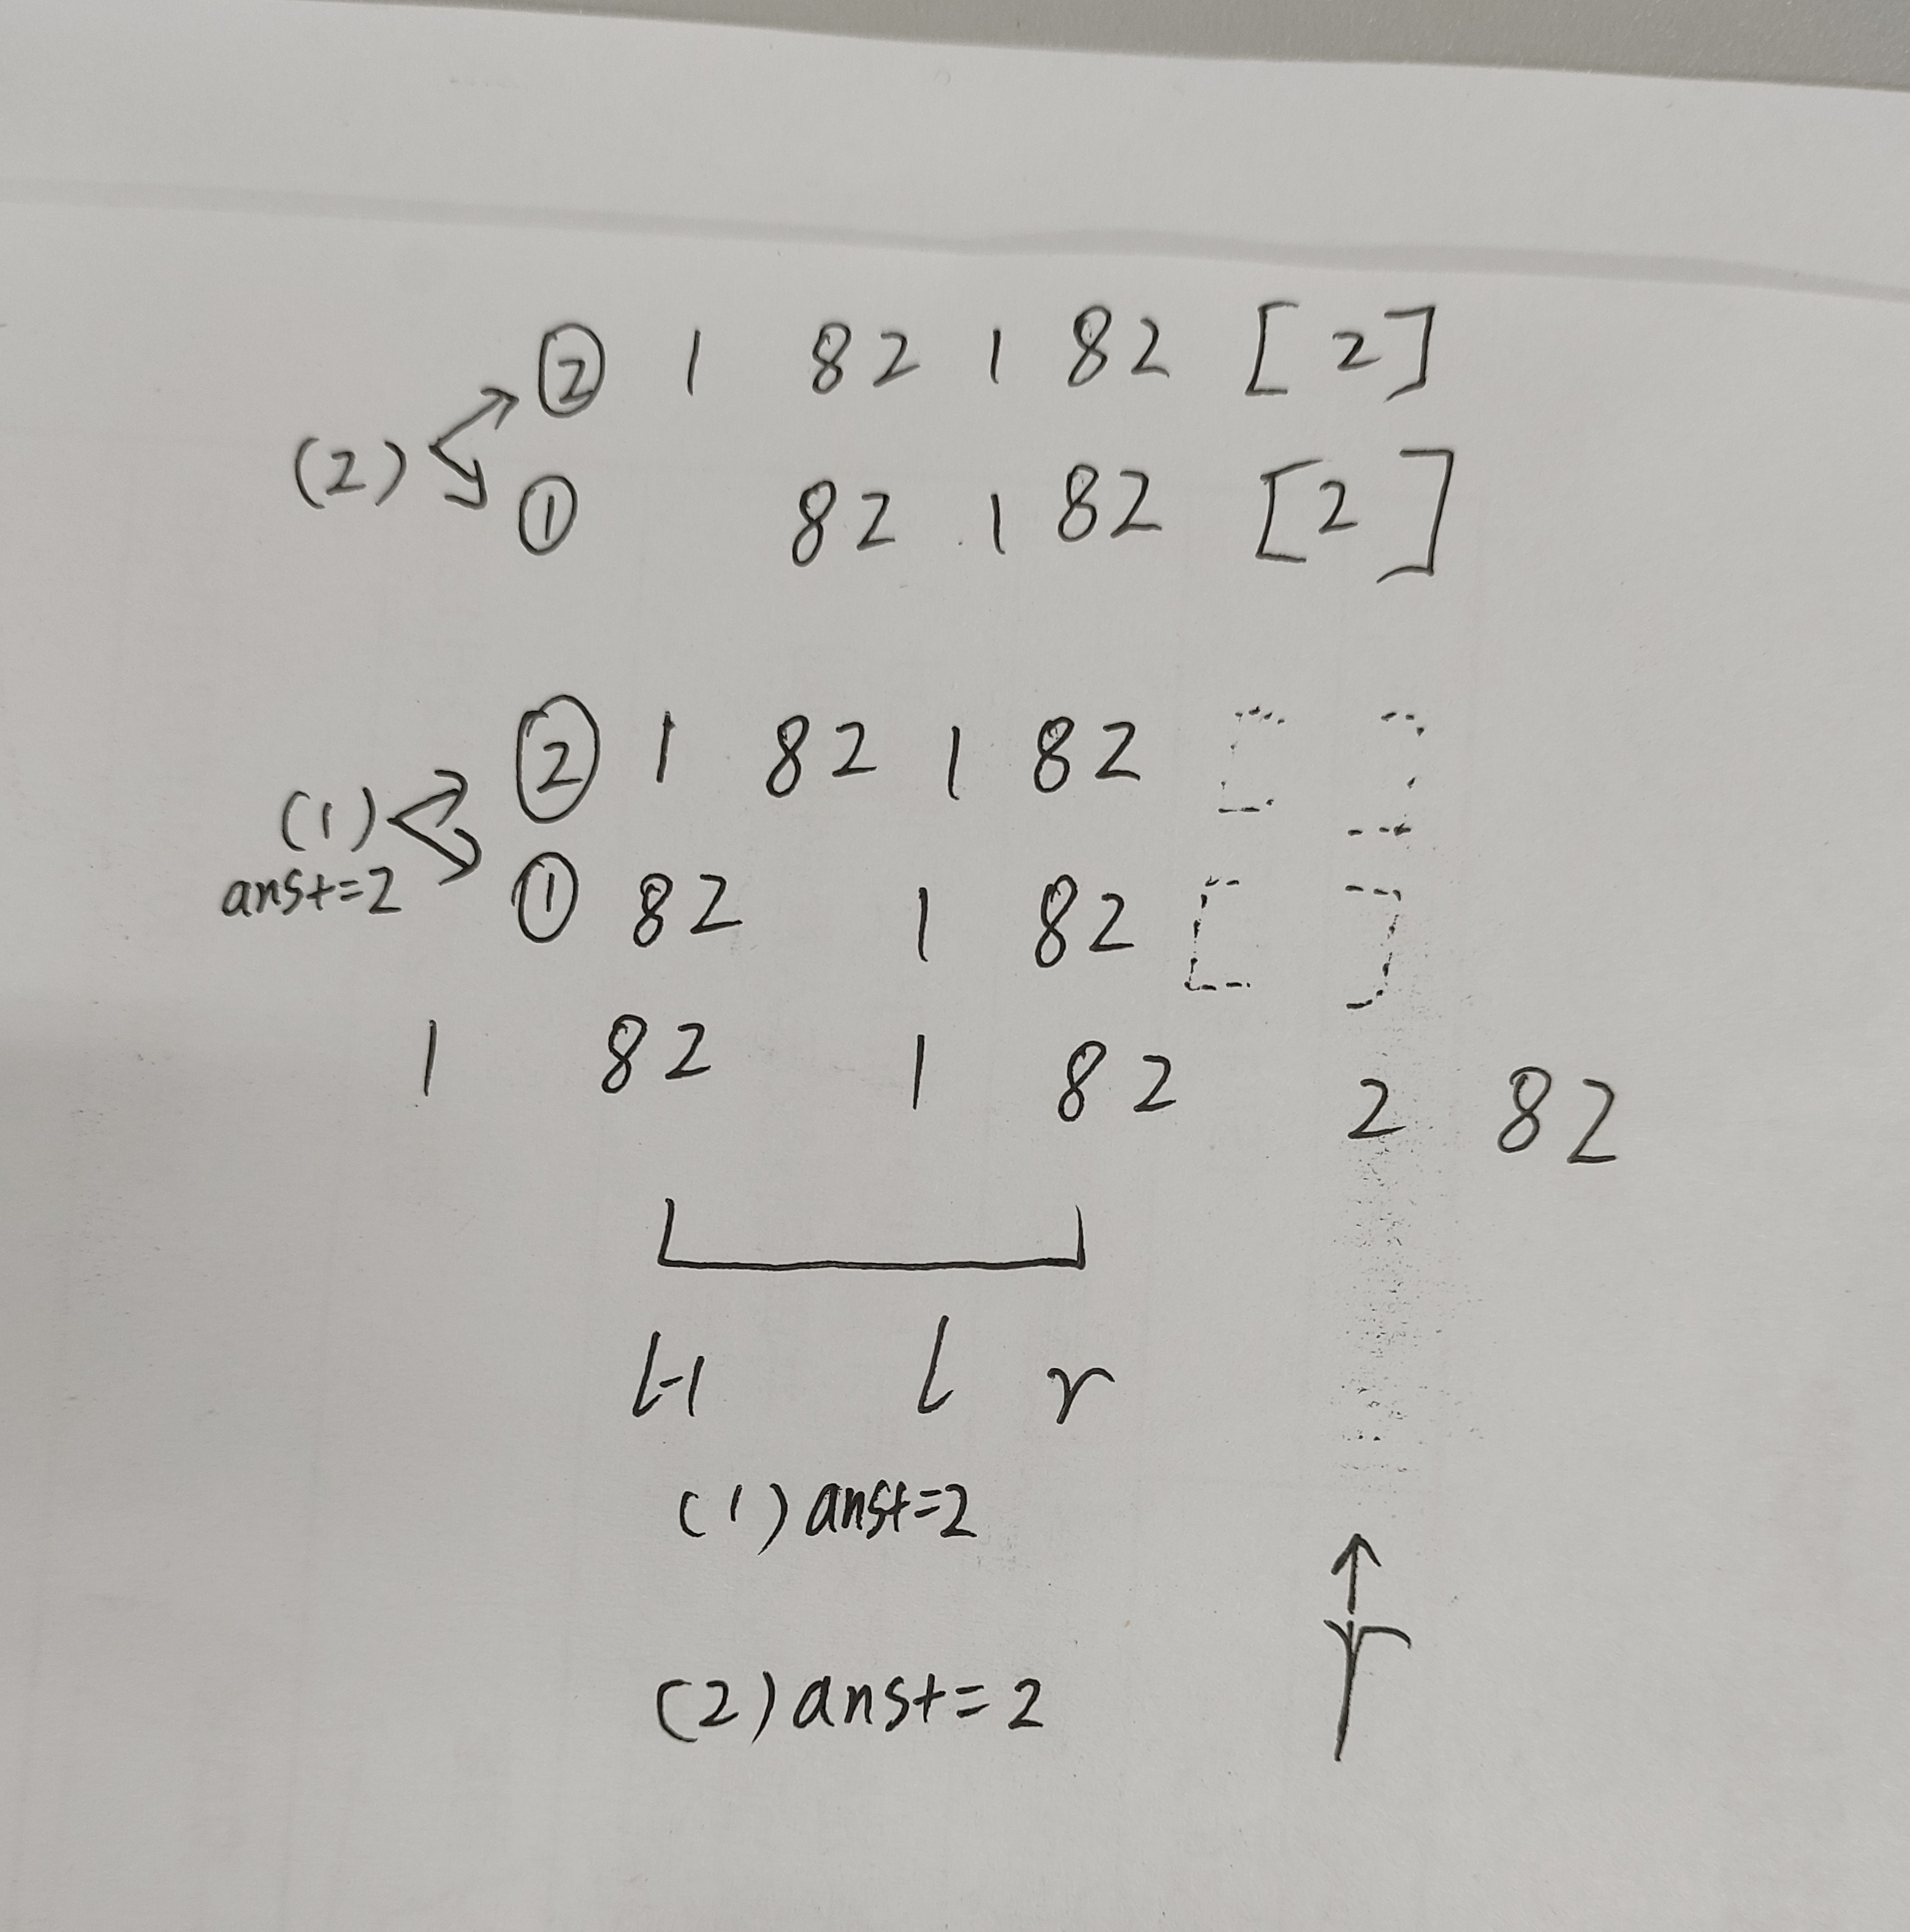 ② 1 82 1 82 [2]
(2)
① 82 1 82 [2]
② 1 82 1 82 [ ]
(1)
ans+=2
① 82 1 82 [ ]
1 82 1 82 2 82
l-1 l r
(1) ans+=2
r
(2) ans+=2